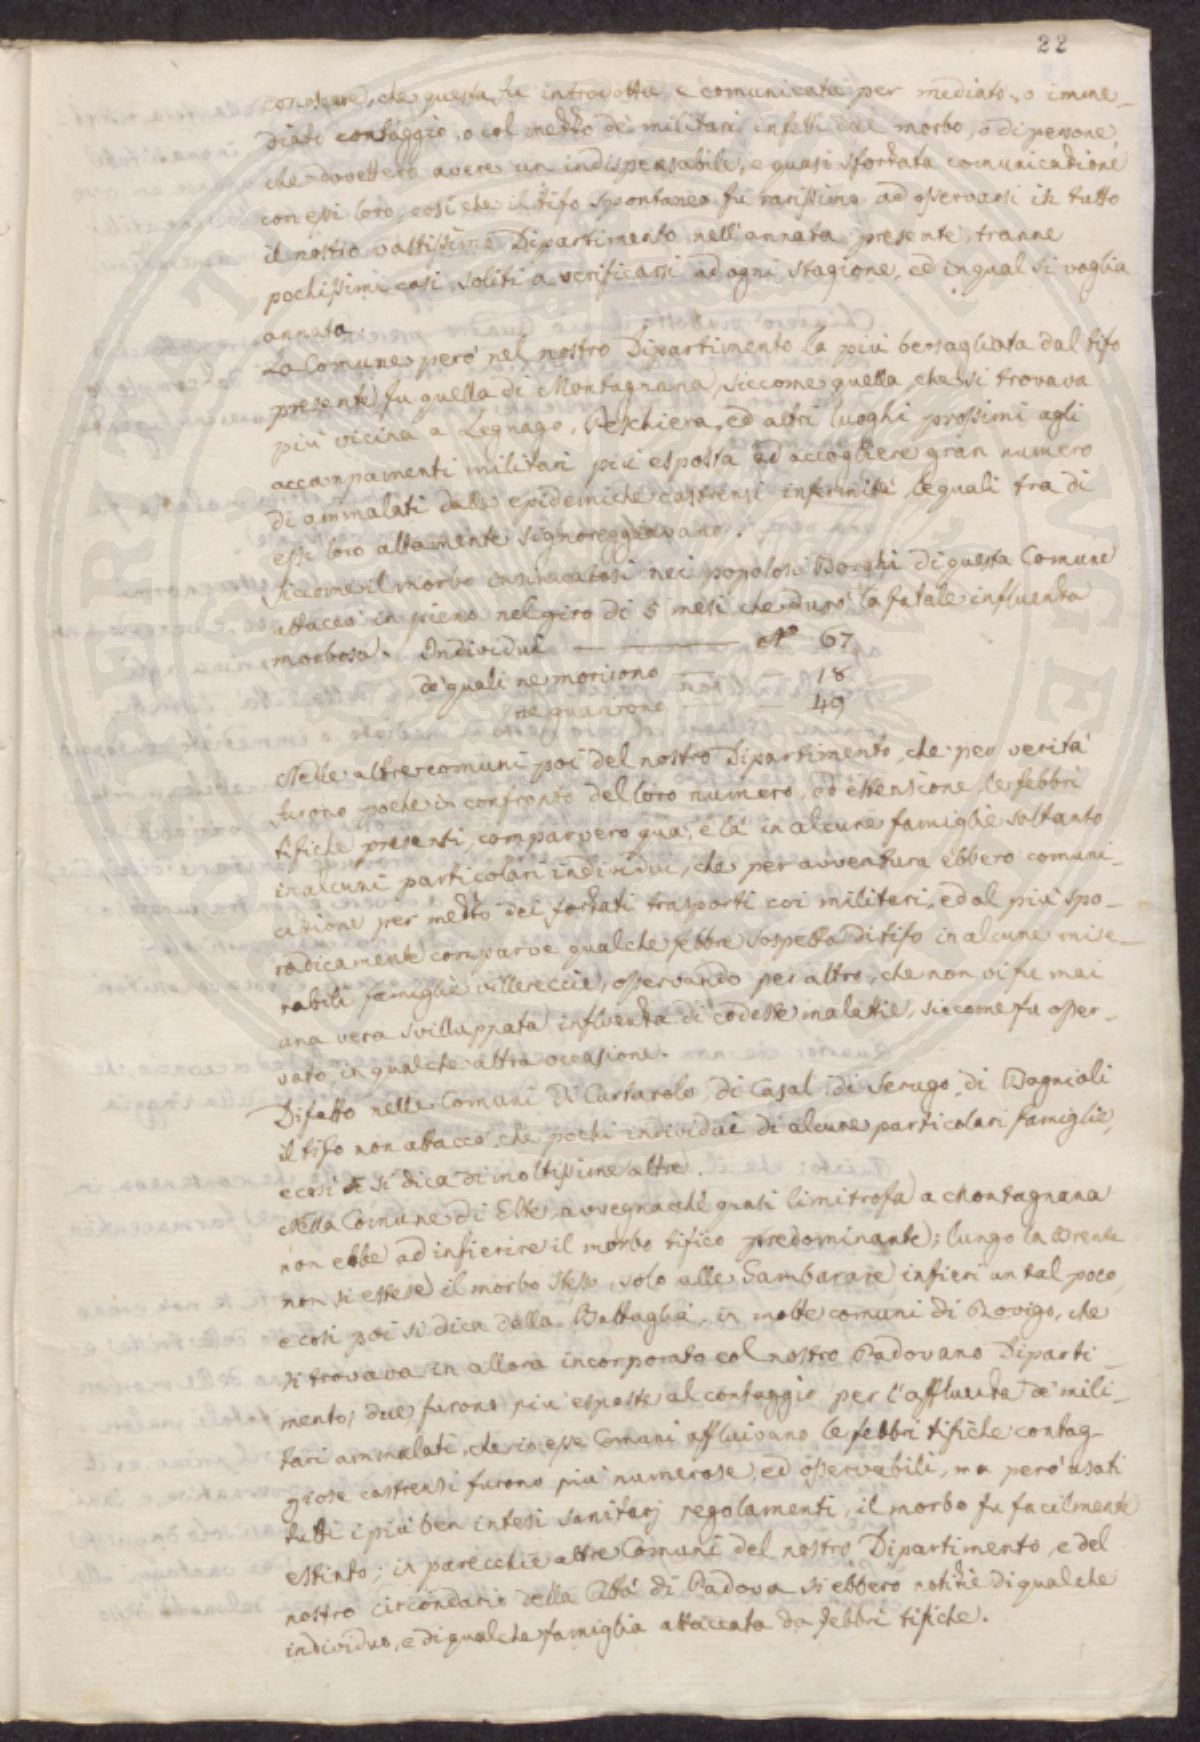 22
conoscere, che questa fu introdotta e comunicata per mediato, o imme-
diato contaggio, o col mezzo de' militari infetti dal morbo, o di persone,
che dovettero avere un indispensabile, e quasi sforzata comunicazione
con essi loro, così che il tifo spontaneo fu rarissimo ad osservarsi in tutto
il nostro vastissimo Dipartimento nell'annata presente, tranne
pochissimi casi soliti a verificarsi ad ogni stagione, ed in qual si voglia
annata.
La Comune però nel nostro Dipartimento la più bersagliata dal tifo
presente fu quella di Montagnana, siccome quella, che si trovava
più vicina a Legnago, Peschiera, ed altri luoghi prossimi agli
accampamenti militari più esposta ad accogliere gran numero
di ammalati dalle epidemiche castrensi infermità, le quali tra di
essi loro altamente signoreggiavano.
Siccome il morbo insinuatosi nei popolosi Borghi di questa Comune
attaccò in pieno nel giro di 5 mesi che durò la fatale influenza
morbosa. Individui — — N.º 67
de' quali ne morirono — 18
ne guarirono — — 49
Nelle altre comuni poi del nostro Dipartimento, che per verità
furono poche in confronto del loro numero, ed estensione, le febbri
tifiche presenti, comparvero quà, e là in alcune famiglie soltanto
in alcuni particolari individui, che per avventura ebbero comuni-
cazione per mezzo dei forzati trasporti coi militari, ed al più spo-
radicamente comparve qualche febbre sospetta di tifo in alcune mise-
rabili famiglie villereccie, osservando per altro, che non vi fu mai
una vera svilluppata influenza di codeste malattie, siccome fu osser-
vato in qualche altra occasione.
Difatto nelle Comuni di Cartarolo, di Casal di Serugo, di Bagnioli
il tifo non attaccò, che pochi individui di alcune particolari famiglie,
e così si dica di moltissime altre.
Nella Comune di Este, avvegnacchè quasi limitrofa a Montagnana
non ebbe ad infierire il morbo tifico predominante; lungo la Brenta
non si estese il morbo stesso, solo alle Gambarare infierì un tal poco,
e così poi si dica della Battaglia, in molte comuni di Rovigo, che
si trovava in allora incorporato col nostro Padovano Diparti-
mento; due furono più esposte al contaggio per l'affluenza de' mili-
tari ammalati, che in esse Comuni affluivano le febbri tifiche contag-
giose castrensi furono più numerose, ed osservabili, ma però usati
tutti i più ben intesi sanitarj regolamenti, il morbo fu facilmente
estinto; in parecchie altre Comuni del nostro Dipartimento, e del
nostro circondario della Città di Padova si ebbero notizie di qualche
individuo, e di qualche famiglia attaccata da febbri tifiche.